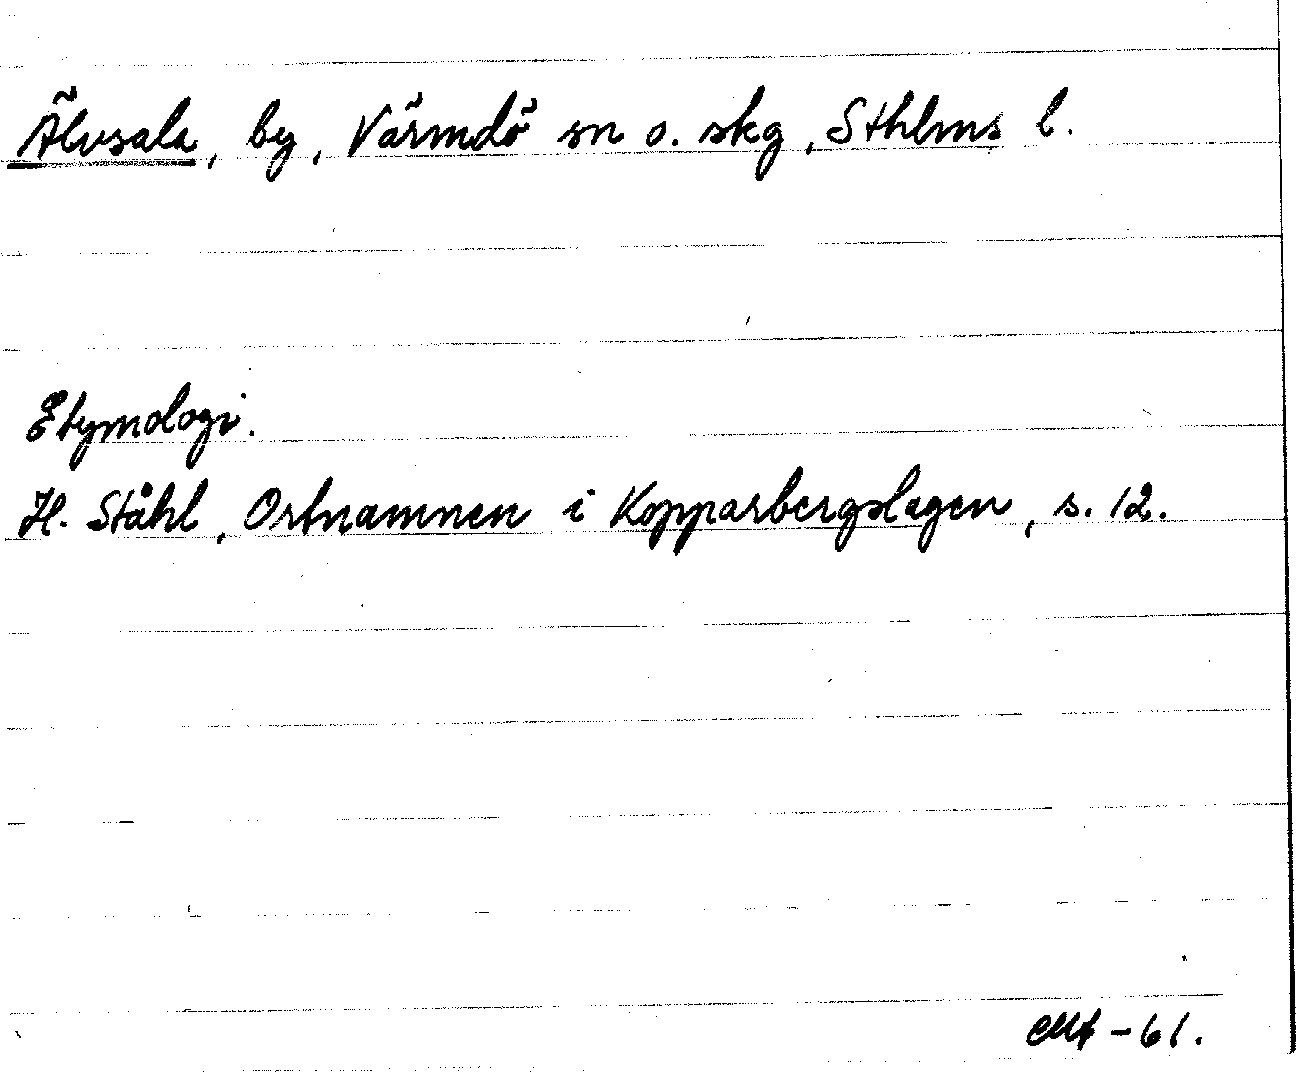 Älvsala, by, Värmdö sn o. skg, Sthlms l.
Etymologi.
H. Ståhl, Ortnamnen i Kopparbergslagen, s. 12.
-61.